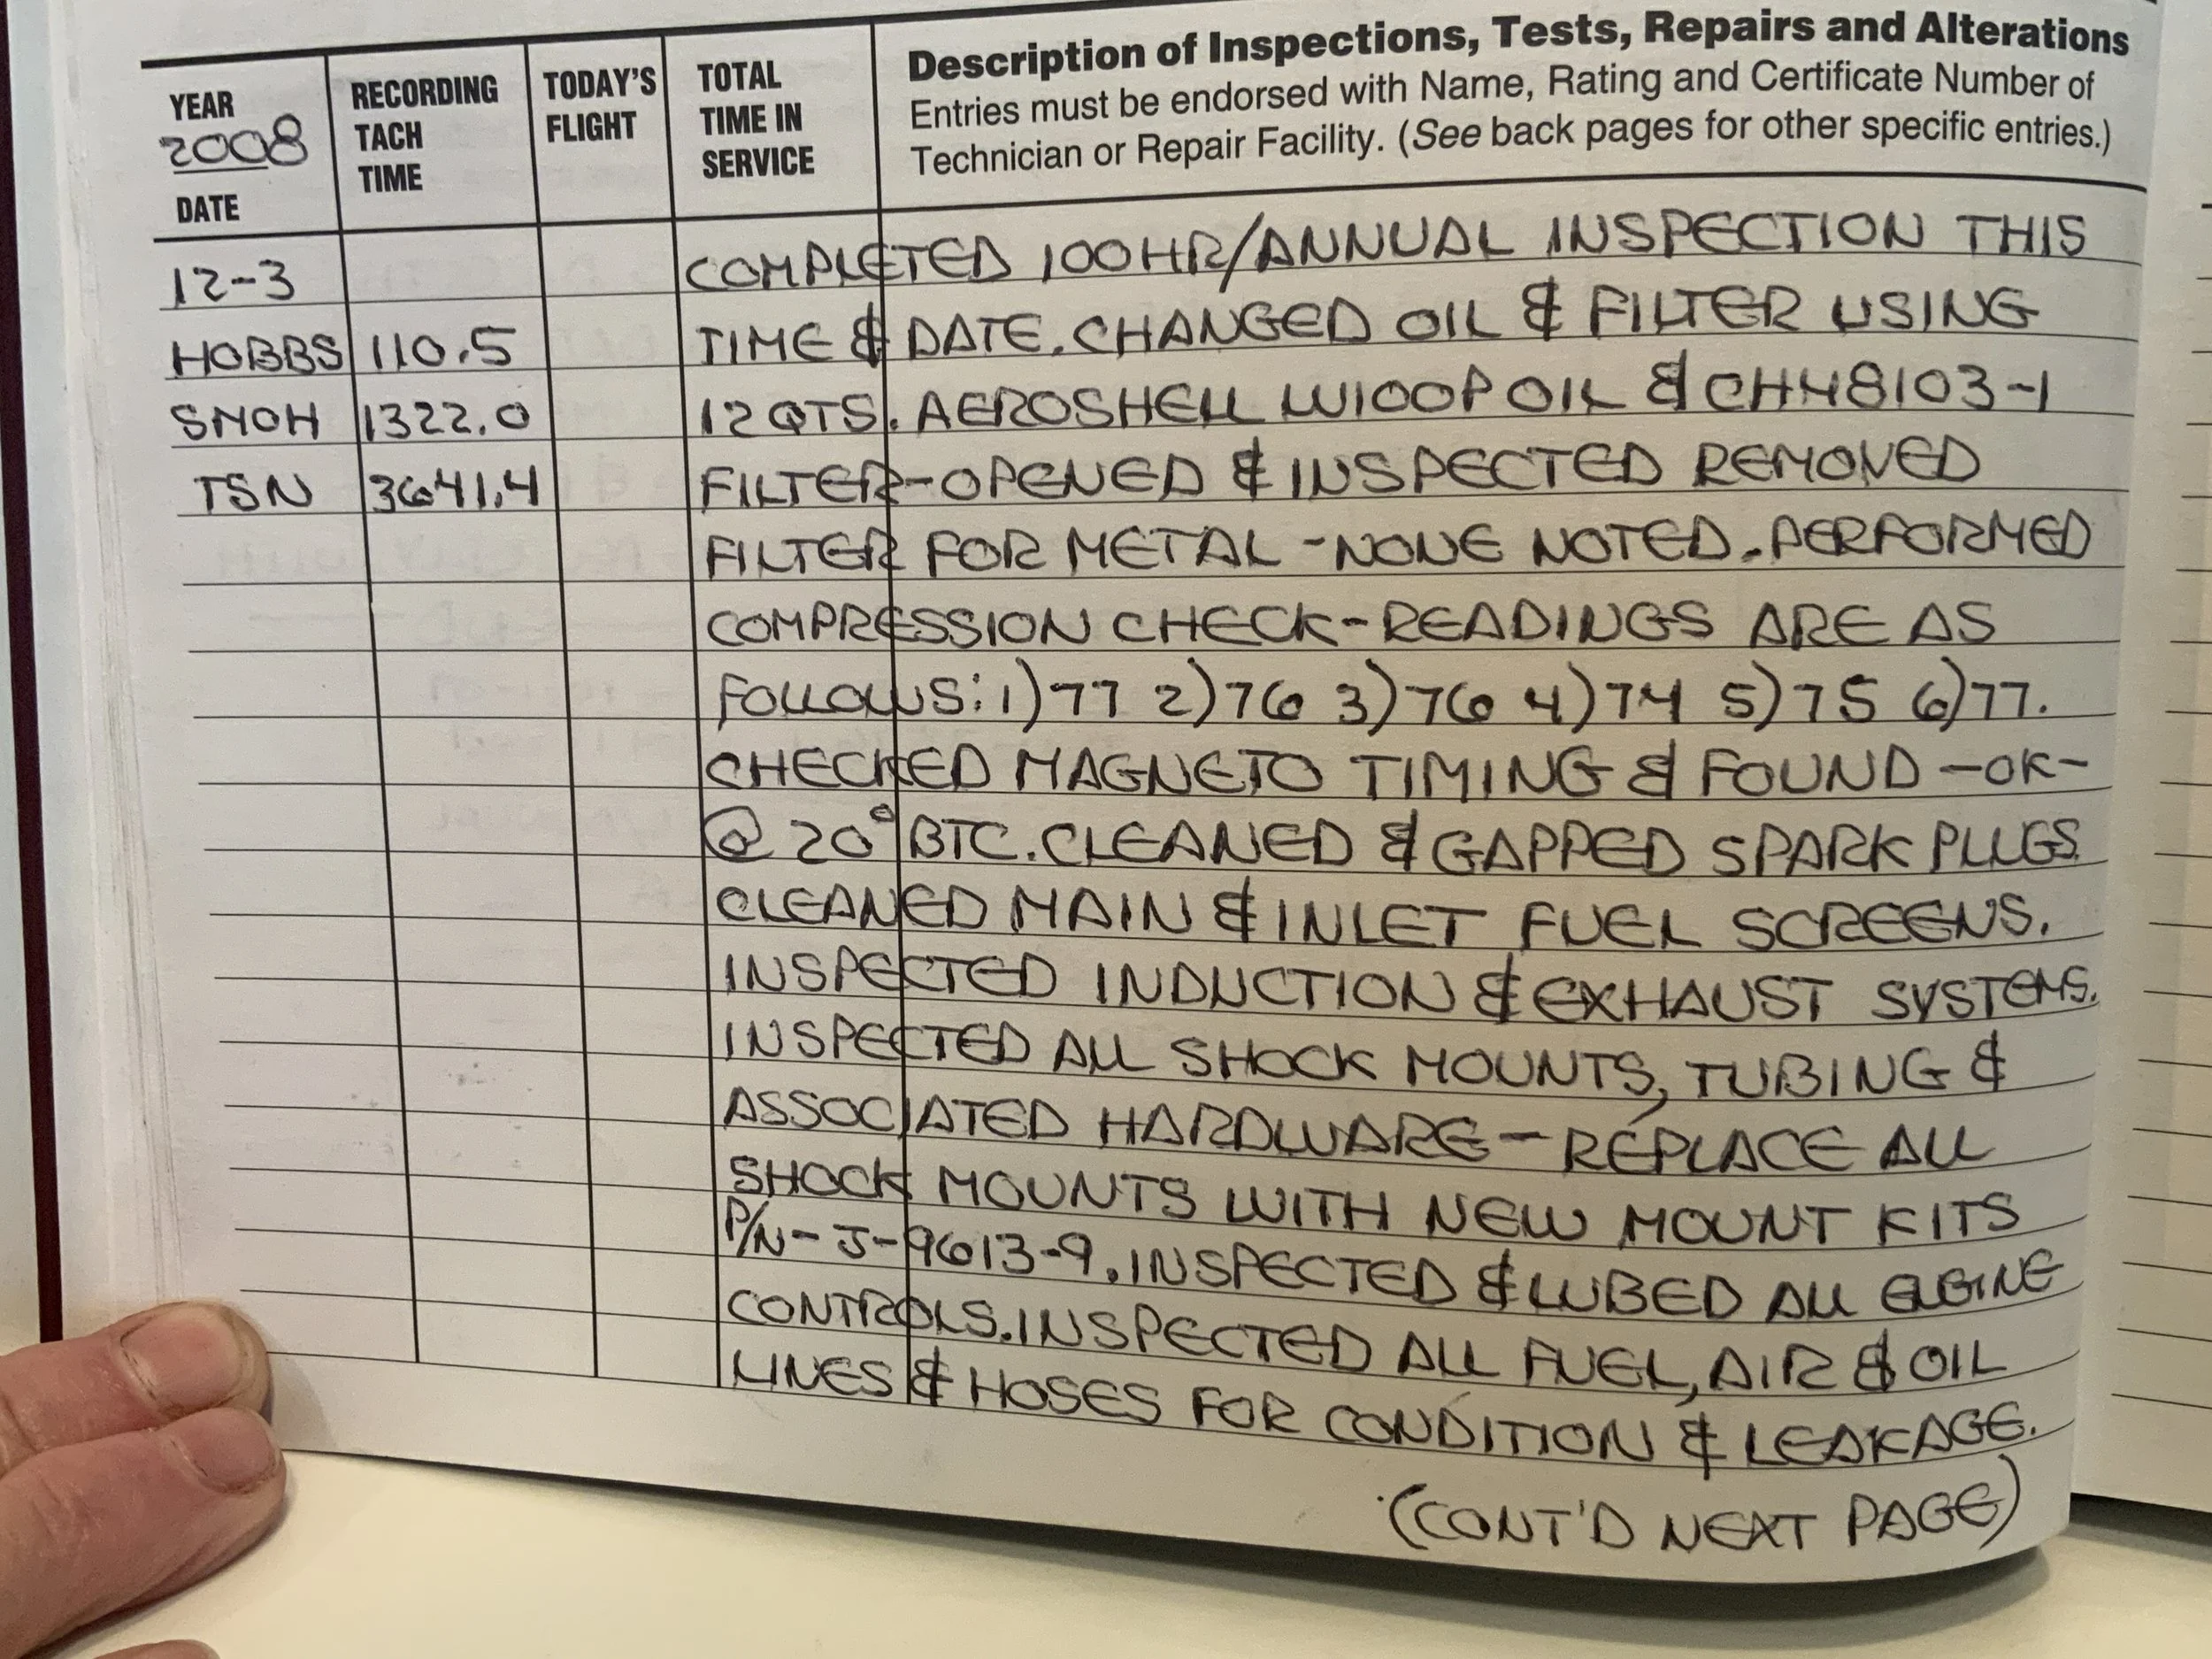 YEAR
2008
DATE
RECORDING
TACH
TIME
TODAY'S
FLIGHT
TOTAL
TIME IN
SERVICE
Description of Inspections, Tests, Repairs and Alterations
Entries must be endorsed with Name, Rating and Certificate Number of
Technician or Repair Facility. (See back pages for other specific entries.)
12-3 COMPLETED 100HR/ANNUAL INSPECTION THIS
HOBBS 110.5 TIME & DATE. CHANGED OIL & FILTER USING
SMOH 1322.0 12 QTS. AEROSHELL W100P OIL & CH48103-1
TSN 3641.4 FILTER-OPENED & INSPECTED REMOVED
FILTER FOR METAL -NONE NOTED. PERFORMED
COMPRESSION CHECK-READINGS ARE AS
FOLLOWS: 1)77 2)76 3)76 4)74 5)75 6)77.
CHECKED MAGNETO TIMING & FOUND -OK-
@ 20° BTC. CLEANED & GAPPED SPARK PLUGS.
CLEANED MAIN & INLET FUEL SCREENS.
INSPECTED INDUCTION & EXHAUST SYSTEMS.
INSPECTED ALL SHOCK MOUNTS, TUBING &
ASSOCIATED HARDWARE - REPLACE ALL
SHOCK MOUNTS WITH NEW MOUNT KITS
P/N- J-9613-9. INSPECTED & LUBED ALL ENGINE
CONTROLS. INSPECTED ALL FUEL, AIR & OIL
LINES & HOSES FOR CONDITION & LEAKAGE.
(CONT'D NEXT PAGE)